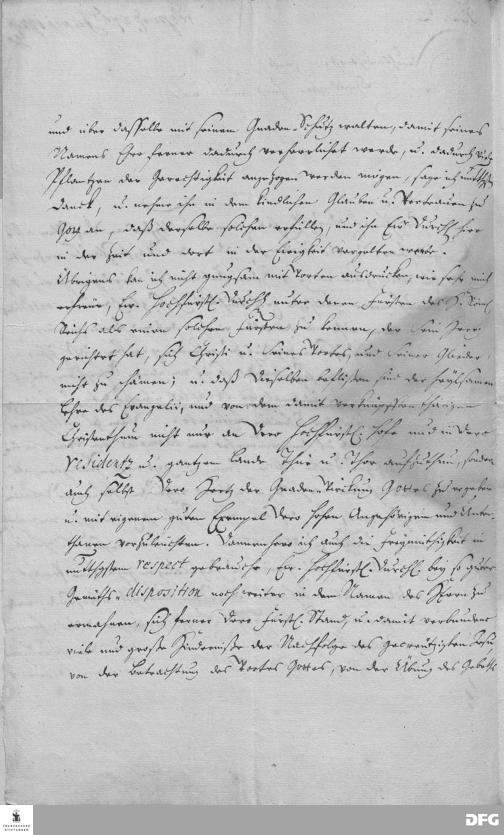 und über dasselbe mit seinem Gnaden-Schutz walten, damit seines
Namens Ehre ferner dadurch verherrlichet werde, u. dadurch viele
Pflantzen der Gerechtigkeit angezogen werden mögen, sage ich
Danck, u. nehme ihn in dem kindlichen Glauben u. Vertrauen zu
Gott an, daß derselbe solchen erfüllen, und ihn Ew. Durchl. hier
in der Zeit und dort in der Ewigkeit vergelten werde.
Übrigens kan ich nicht gnugsam mit Worten ausdrücken, wie sehr mich
erfreue, Ew. Hochfürstl. Durchl. unter denen Fürsten des H. Röm.
Reichs als einen solchen Fürsten zu kennen, der Sein Hertz
gerichtet hat, sich Christi u. Seines Wortes, und Seiner Glieder
nicht zu schämen; u. daß Dieselben beflißen sind der heylsamen
Lehre des Evangelii, und von dem damit verknüpften thätigen
Christenthum nicht nur an Dero Hochfürstl. Hofe und in Dero
Residentz u. gantzem Lande Thür u. Thor aufzuthun, sondern
auch selbst Dero Hertz der Gnaden-Wirckung Gottes zu ergeben
u. mit eigenem guten Exempel Dero hohen Angehörigen und Unter-
thanen vorzuleuchten. Dannenhero ich auch die Freymüthigkeit in
respect gebrauche, Ew. Hochfürstl. Durchl. bey so guter
Gemüths-disposition noch weiter in dem Namen des HErrn zu
ermahnen, sich ferner Dero Fürstl. Stand, u. damit verbundene
viele und große Hinderniße der Nachfolge des gecreutzigten Jesu
von der Betrachtung des Wortes Gottes, von der Übung des Gebets
FRANCKESCHE STIFTUNGEN
DFG